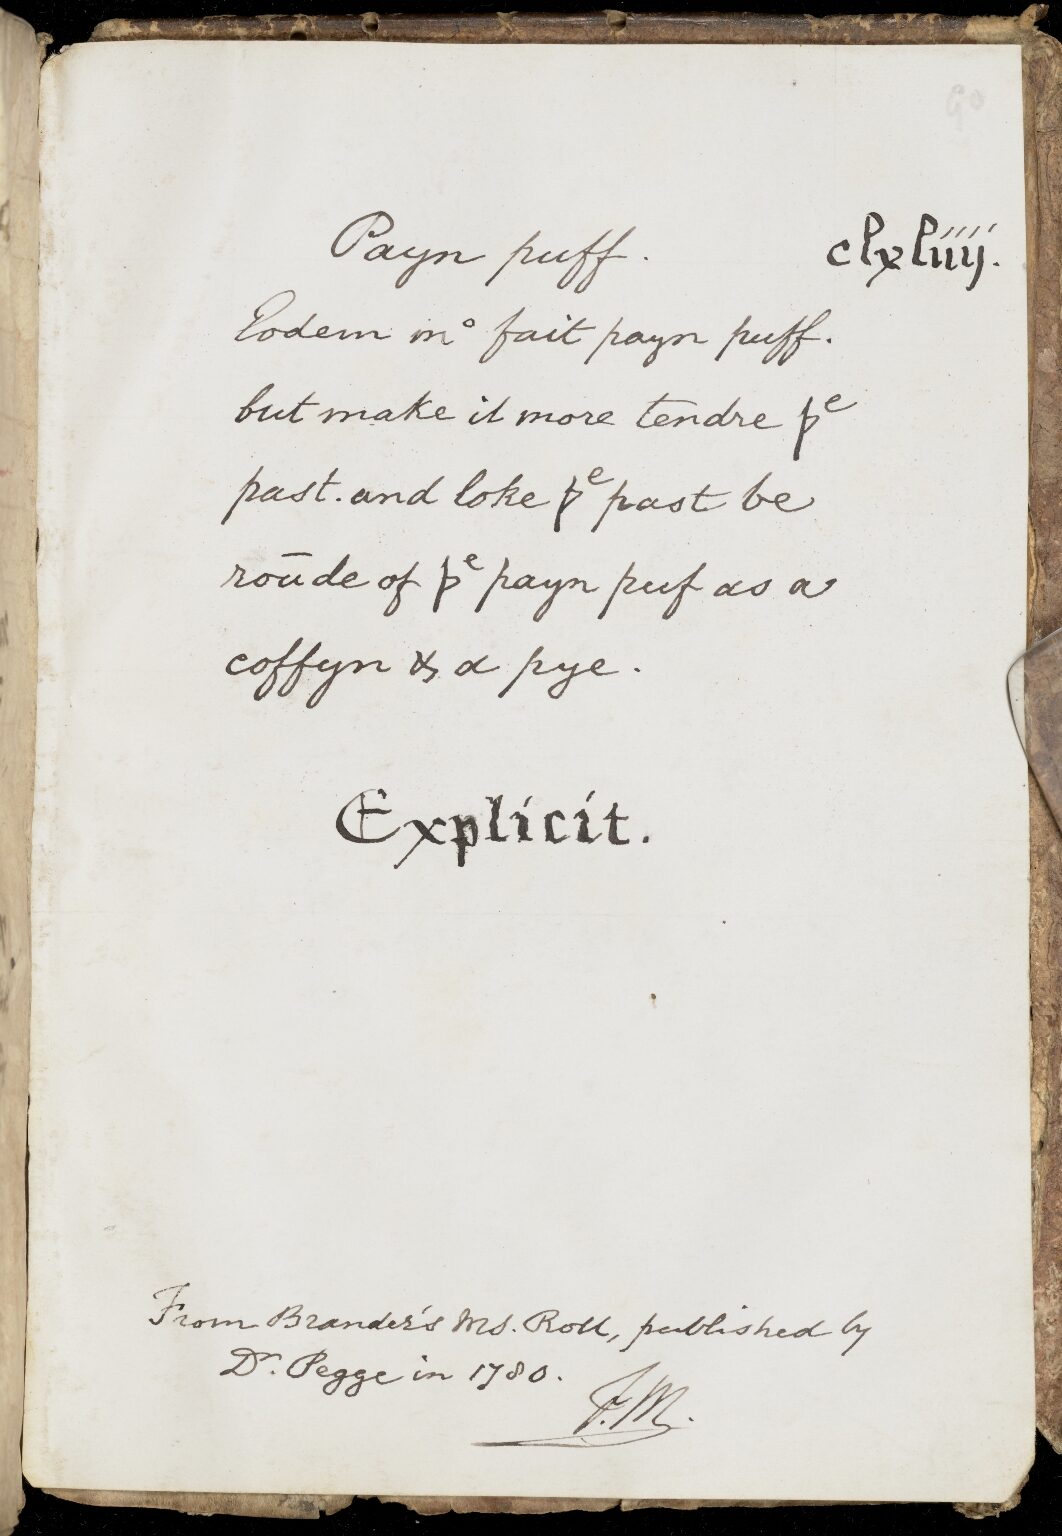 90
Payn puff. clxliiij.
Eodem mº fait payn puff.
but make it more tendre þᵉ
past. and loke þᵉ past be
roūde of þᵉ payn puf as a
coffyn & a pye.
Explicit.
From Brander's MS. Roll, published by
Dr. Pegge in 1780.
F.M.